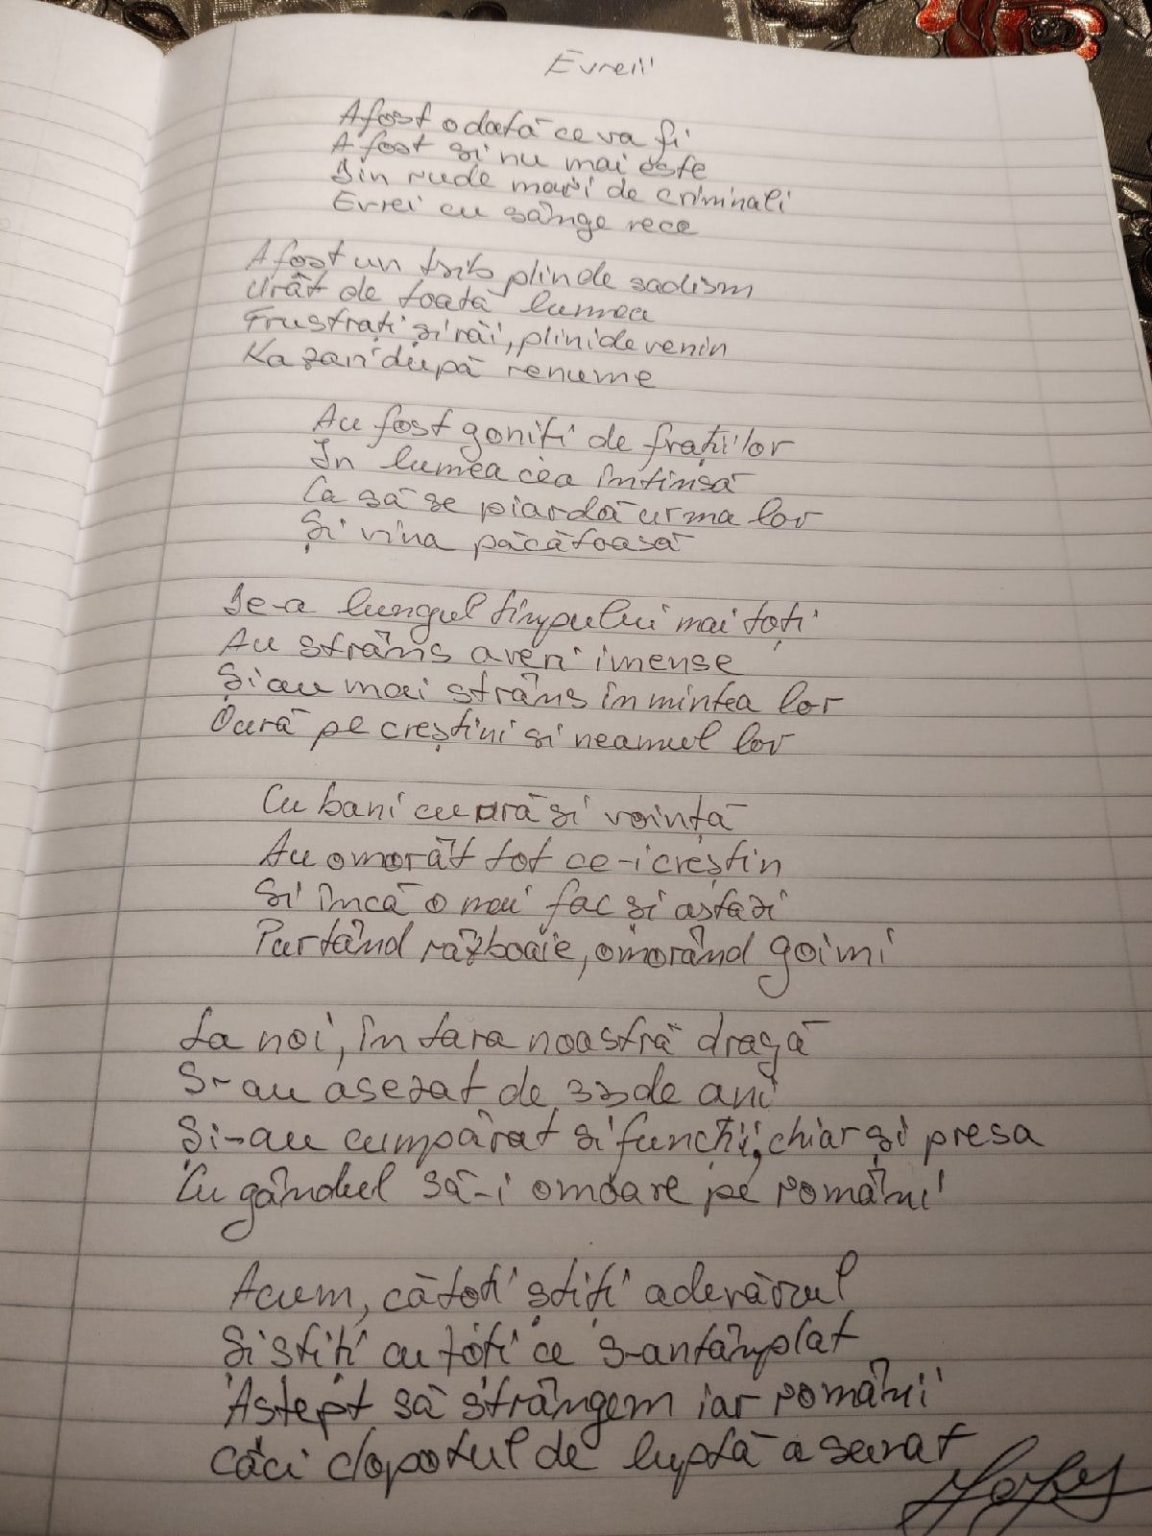 Evreii
A fost odată ce va fi
A fost si nu mai este
Din rude mari de criminali
Evrei cu sânge rece
A fost un trib plin de sadism
Urât de toată lumea
Frustrați și răi, plini de venin
Kazari după renume
Au fost goniti de frații lor
In lumea cea întinsă
Ca să se piardă urma lor
Și vina păcătoasă
De-a lungul timpului mai toți
Au strâns averi imense
Și au mai strâns în mintea lor
Oură pe creștini si neamul lor
Cu bani cu ură si voință
Au omorât tot ce-i creștin
Si încă o mai fac si astăzi
Purtând războaie, omorând goimi
La noi, în tara noastră dragă
S-au asezat de 33 de ani
Și-au cumpărat si funcții, chiar și presa
Cu gândul să-i omoare pe români
Acum, că toti știți adevărul
Si stiți cu toți ce s-antâmplat
Astept să strângem iar românii
Căci clopotul de luptă a sunat